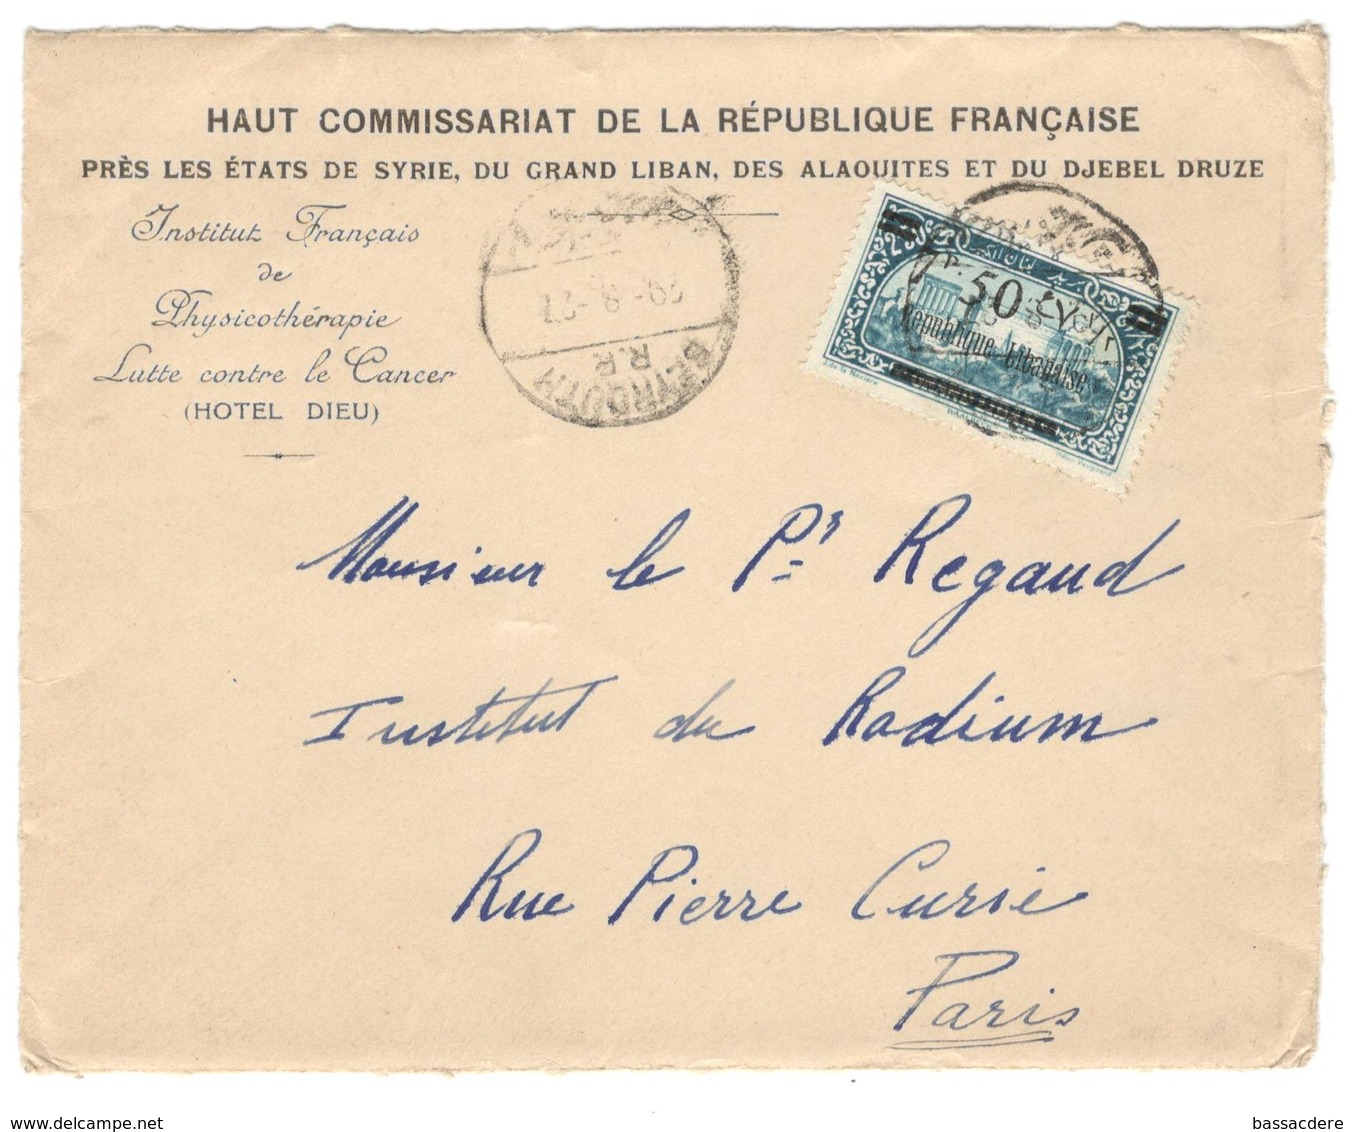 HAUT COMMISSARIAT DE LA RÉPUBLIQUE FRANÇAISE
PRÈS LES ÉTATS DE SYRIE, DU GRAND LIBAN, DES ALAOUITES ET DU DJEBEL DRUZE
Institut Français
de
Physicothérapie
Lutte contre le Cancer
(HOTEL DIEU)
29-8-27
BEYROUTH
R.P.
50
République Libanaise
Monsieur le Pr Regaud
Institut du Radium
Rue Pierre Curie
Paris
www.delcampe.net
bassacdere